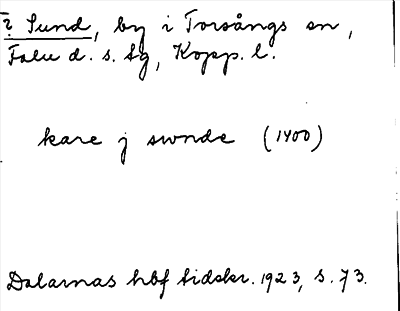 ? Sund, by i Torsångs sn,
Falu d. s. tg, Kopp. l.
kare j swnde (1400)
Dalarnas hbf tidskr. 1923, s. 73.